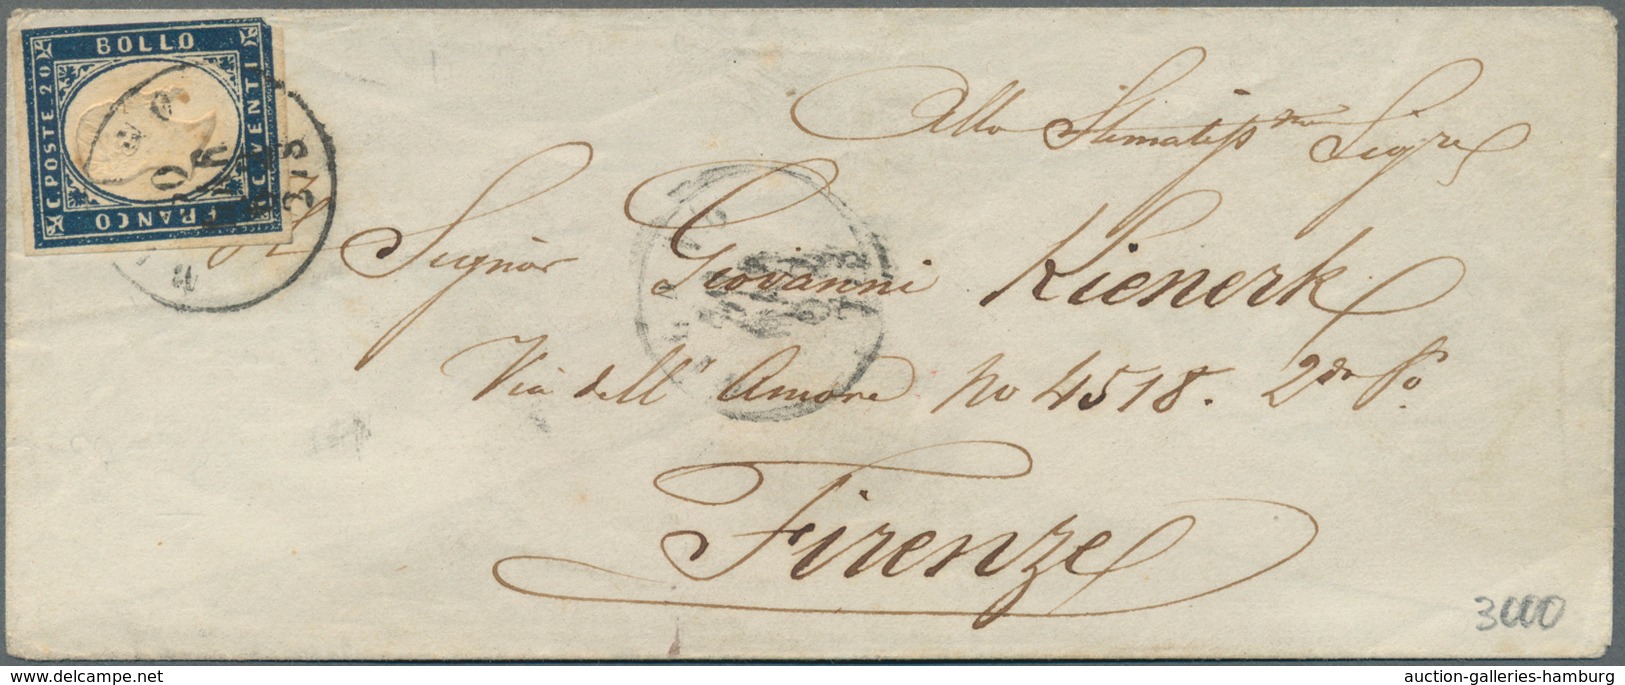 BOLLO
C. POSTE 20
C. VENTI
FRANCO
Allo Stimatissmo Sigre
Il Signor Giovanni Kienerk
Via dell' Amore No 4518. 2do Po.
Firenze
3000
auction-galleries-hamburg